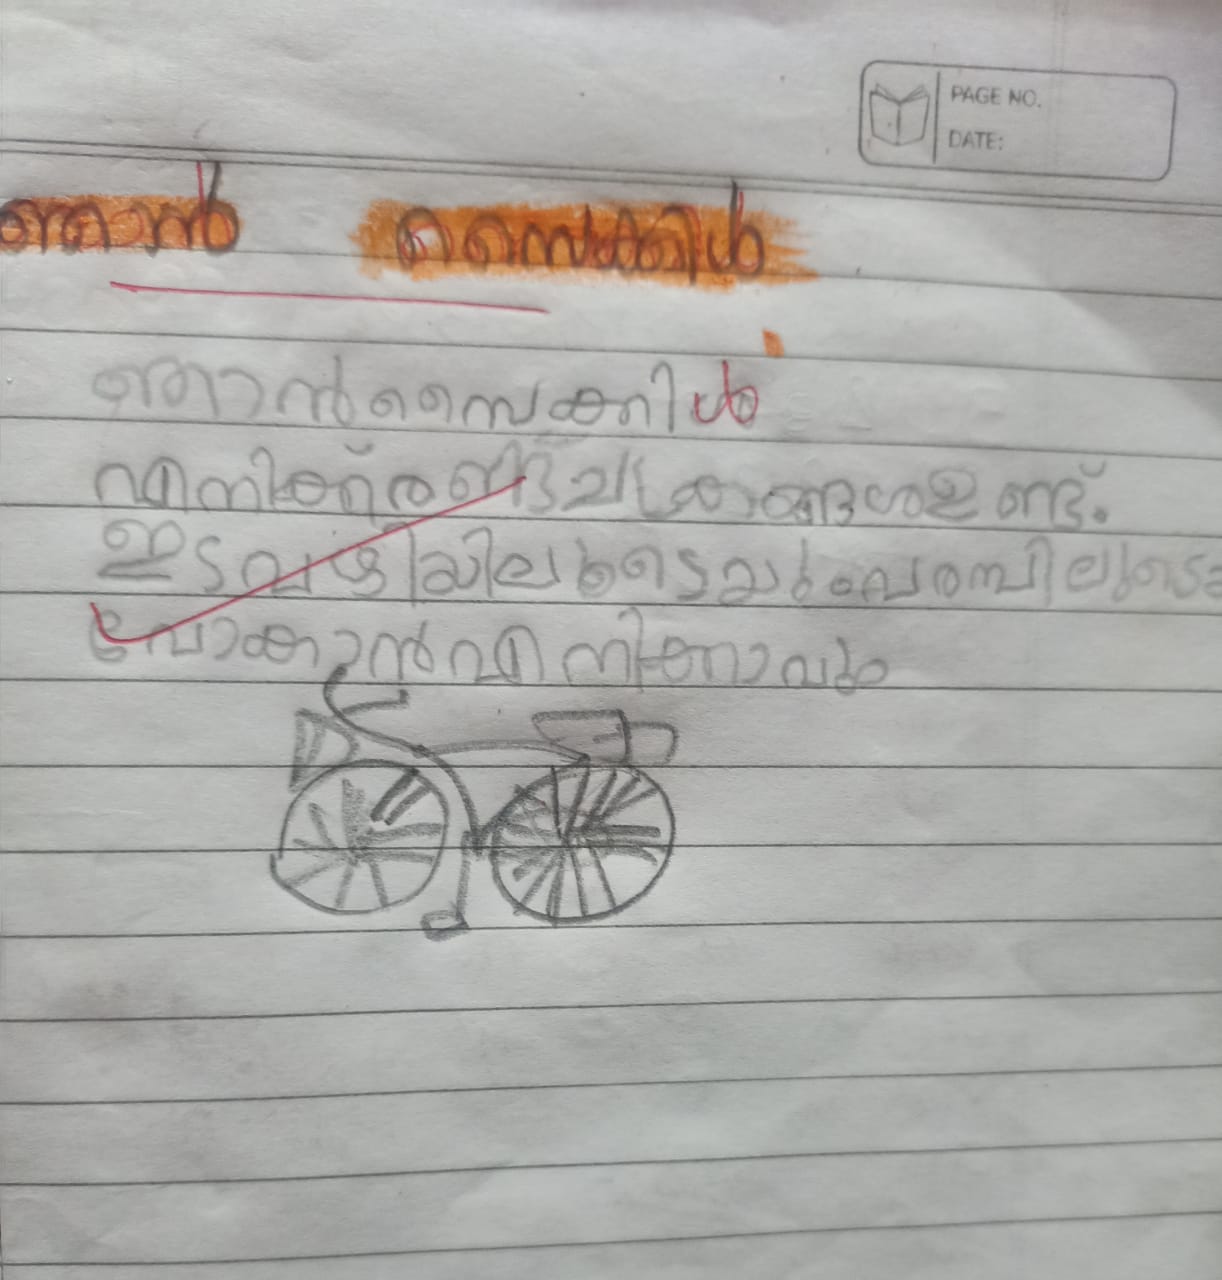 PAGE NO.
DATE:
ഞാൻ സൈക്കിൾ
ഞാൻ സൈക്കിൾ
എനിക്ക് രണ്ട് ചക്രങ്ങൾ ഉണ്ട്.
ഇടവഴിയിലുടെയും പറമ്പിലുടെ
പോകാൻ എനിക്കാവും